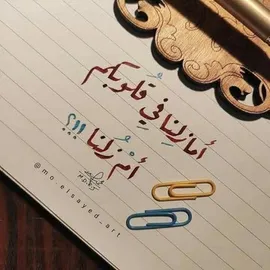 أُمازلنا فِي قُلوبكم
أمْ زلنا !!؟
@mo_elsayed_art